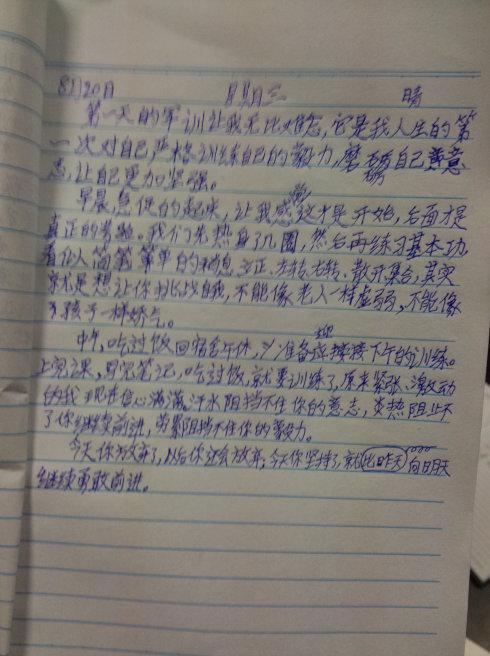 8月20日 星期三 晴
第一天的军训让我无比难忘,它是我人生的第
一次对自己严格训练自己的毅力,磨砺自己意
志,让自己更加坚强。
早晨急促的起床,让我感觉这才是开始,后面才是
真正的考验。我们先热身了几圈,然后再练习基本功
看似简单的稍息、立正、左转、右转、散开集合,其实
就是想让你挑战自我,不能像老人一样虚弱,不能像
孩子一样娇气。
中午,吃过饭回宿舍午休,准备迎接下午的训练。
上完课,写完笔记,吃过饭,就要训练了,原来紧张、激动
的我现在信心满满。汗水阻挡不住你的意志,炎热阻止不
了你继续前进,劳累阻挡不住你的毅力。
今天你放弃了,以后你还会放弃;今天你坚持了,就比昨天向明天
继续勇敢前进。